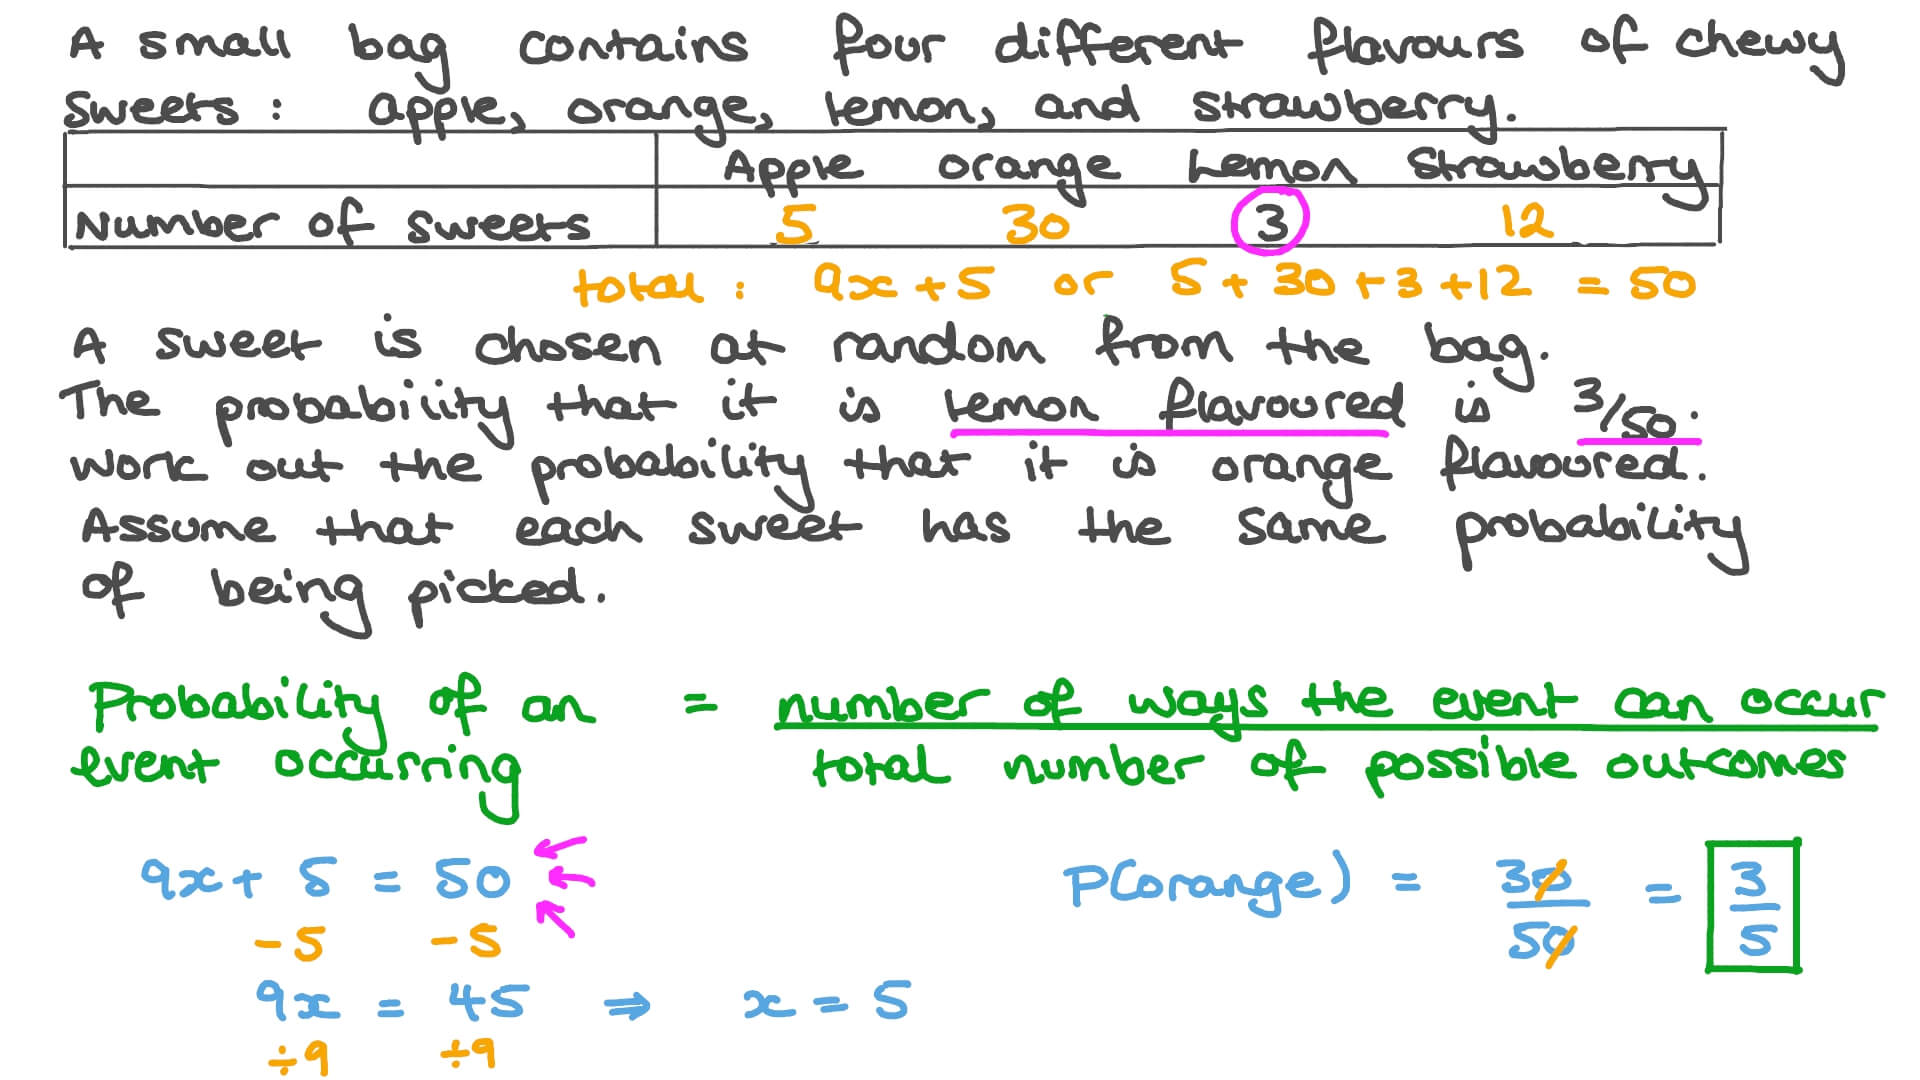 A small bag contains four different flavours of chewy
sweets : apple, orange, lemon, and strawberry.
Apple orange Lemon Strawberry
Number of sweets 5 30 3 12
total : 9x + 5 or 5 + 30 + 3 + 12 = 50
A sweet is chosen at random from the bag.
The probability that it is lemon flavoured is 3/50.
Work out the probability that it is orange flavoured.
Assume that each sweet has the same probability
of being picked.
Probability of an = number of ways the event can occur
event occurring total number of possible outcomes
9x + 5 = 50
-5 -5
9x = 45 ⇒ x = 5
÷9 ÷9
P(orange) = 30/50 = 3/5